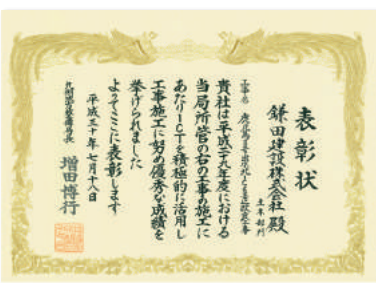 表彰状
鎌田建設株式会社 殿
土木部門
工事名
貴社は平成二十九年度における
当局所管の右の工事の施工に
あたりICTを積極的に活用し
工事施工に努め優秀な成績を
挙げられました
よってここに表彰します
平成三十年七月十八日
九州地方整備局長 増田博行